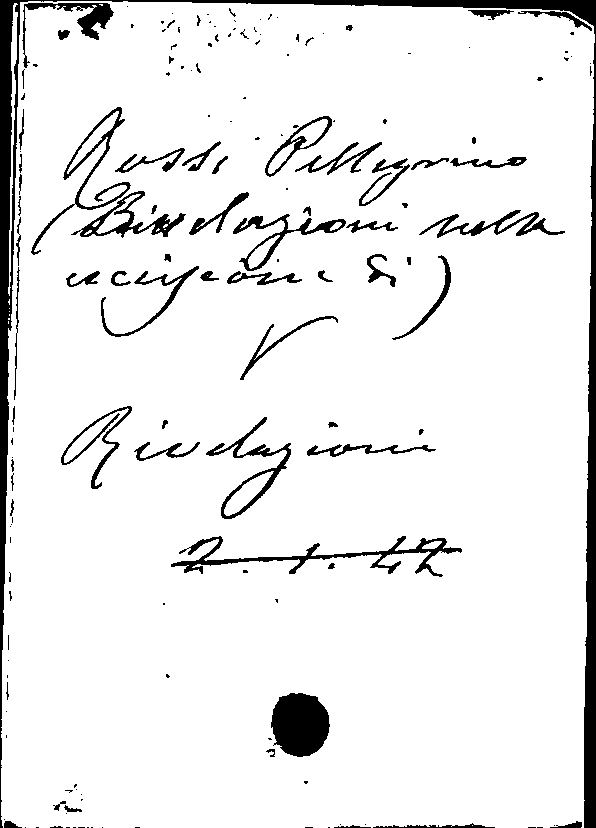 Rossi Pellegrino
(Rivelazioni sulla
uccisione di)
V
Rivelazioni
2.1.42